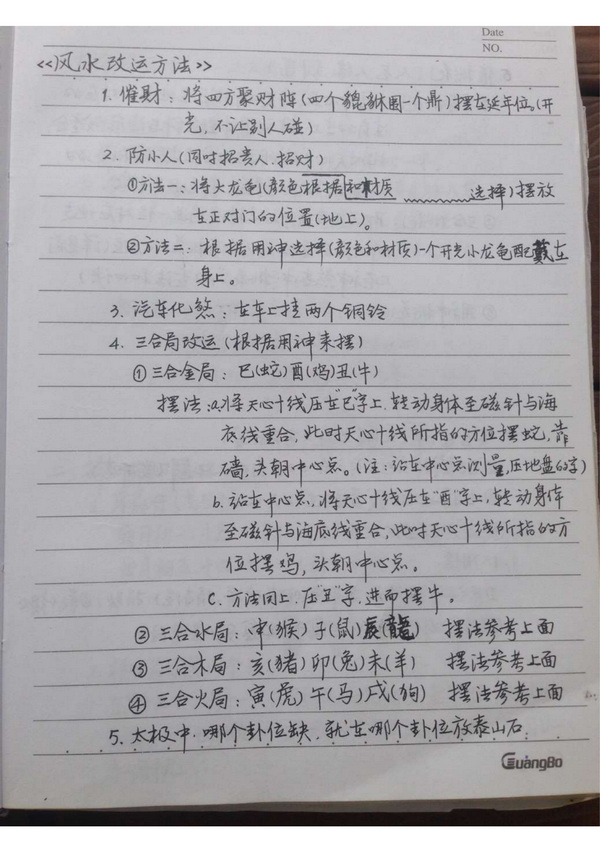 Date
NO.
《风水改运方法》
1. 催财：将四方聚财阵(四个貔貅围一个鼎)摆在延年位,(开
光，不让别人碰)
2. 防小人(同时招贵人.招财)
①方法一：将大龙龟(颜色根据和材质 选择)摆放
在正对门的位置(地上)。
②方法二：根据用神选择(颜色和材质)一个开光小龙龟配戴在
身上。
3. 汽车化煞：在车上挂两个铜铃
4. 三合局改运(根据用神来摆)
①三合金局：巳(蛇)酉(鸡)丑(牛)
摆法：a.将天心十线压在"巳"字上.转动身体至磁针与海
底线重合，此时天心十线所指的方位摆蛇，靠
墙，头朝中心点。(注：站在中心点测量,压地盘的字)
b.站在中心点，将天心十线压在"酉"字上，转动身体
至磁针与海底线重合，此时天心十线所指的方
位摆鸡，头朝中心点。
c.方法同上.压"丑"字.进而摆牛。
②三合水局：申(猴)子(鼠)辰(龍) 摆法参考上面
③三合木局：亥(猪)卯(兔)未(羊) 摆法参考上面
④三合火局：寅(虎)午(马)戌(狗) 摆法参考上面
5. 太极中.哪个卦位缺.就在哪个卦位放泰山石.
GuangBo